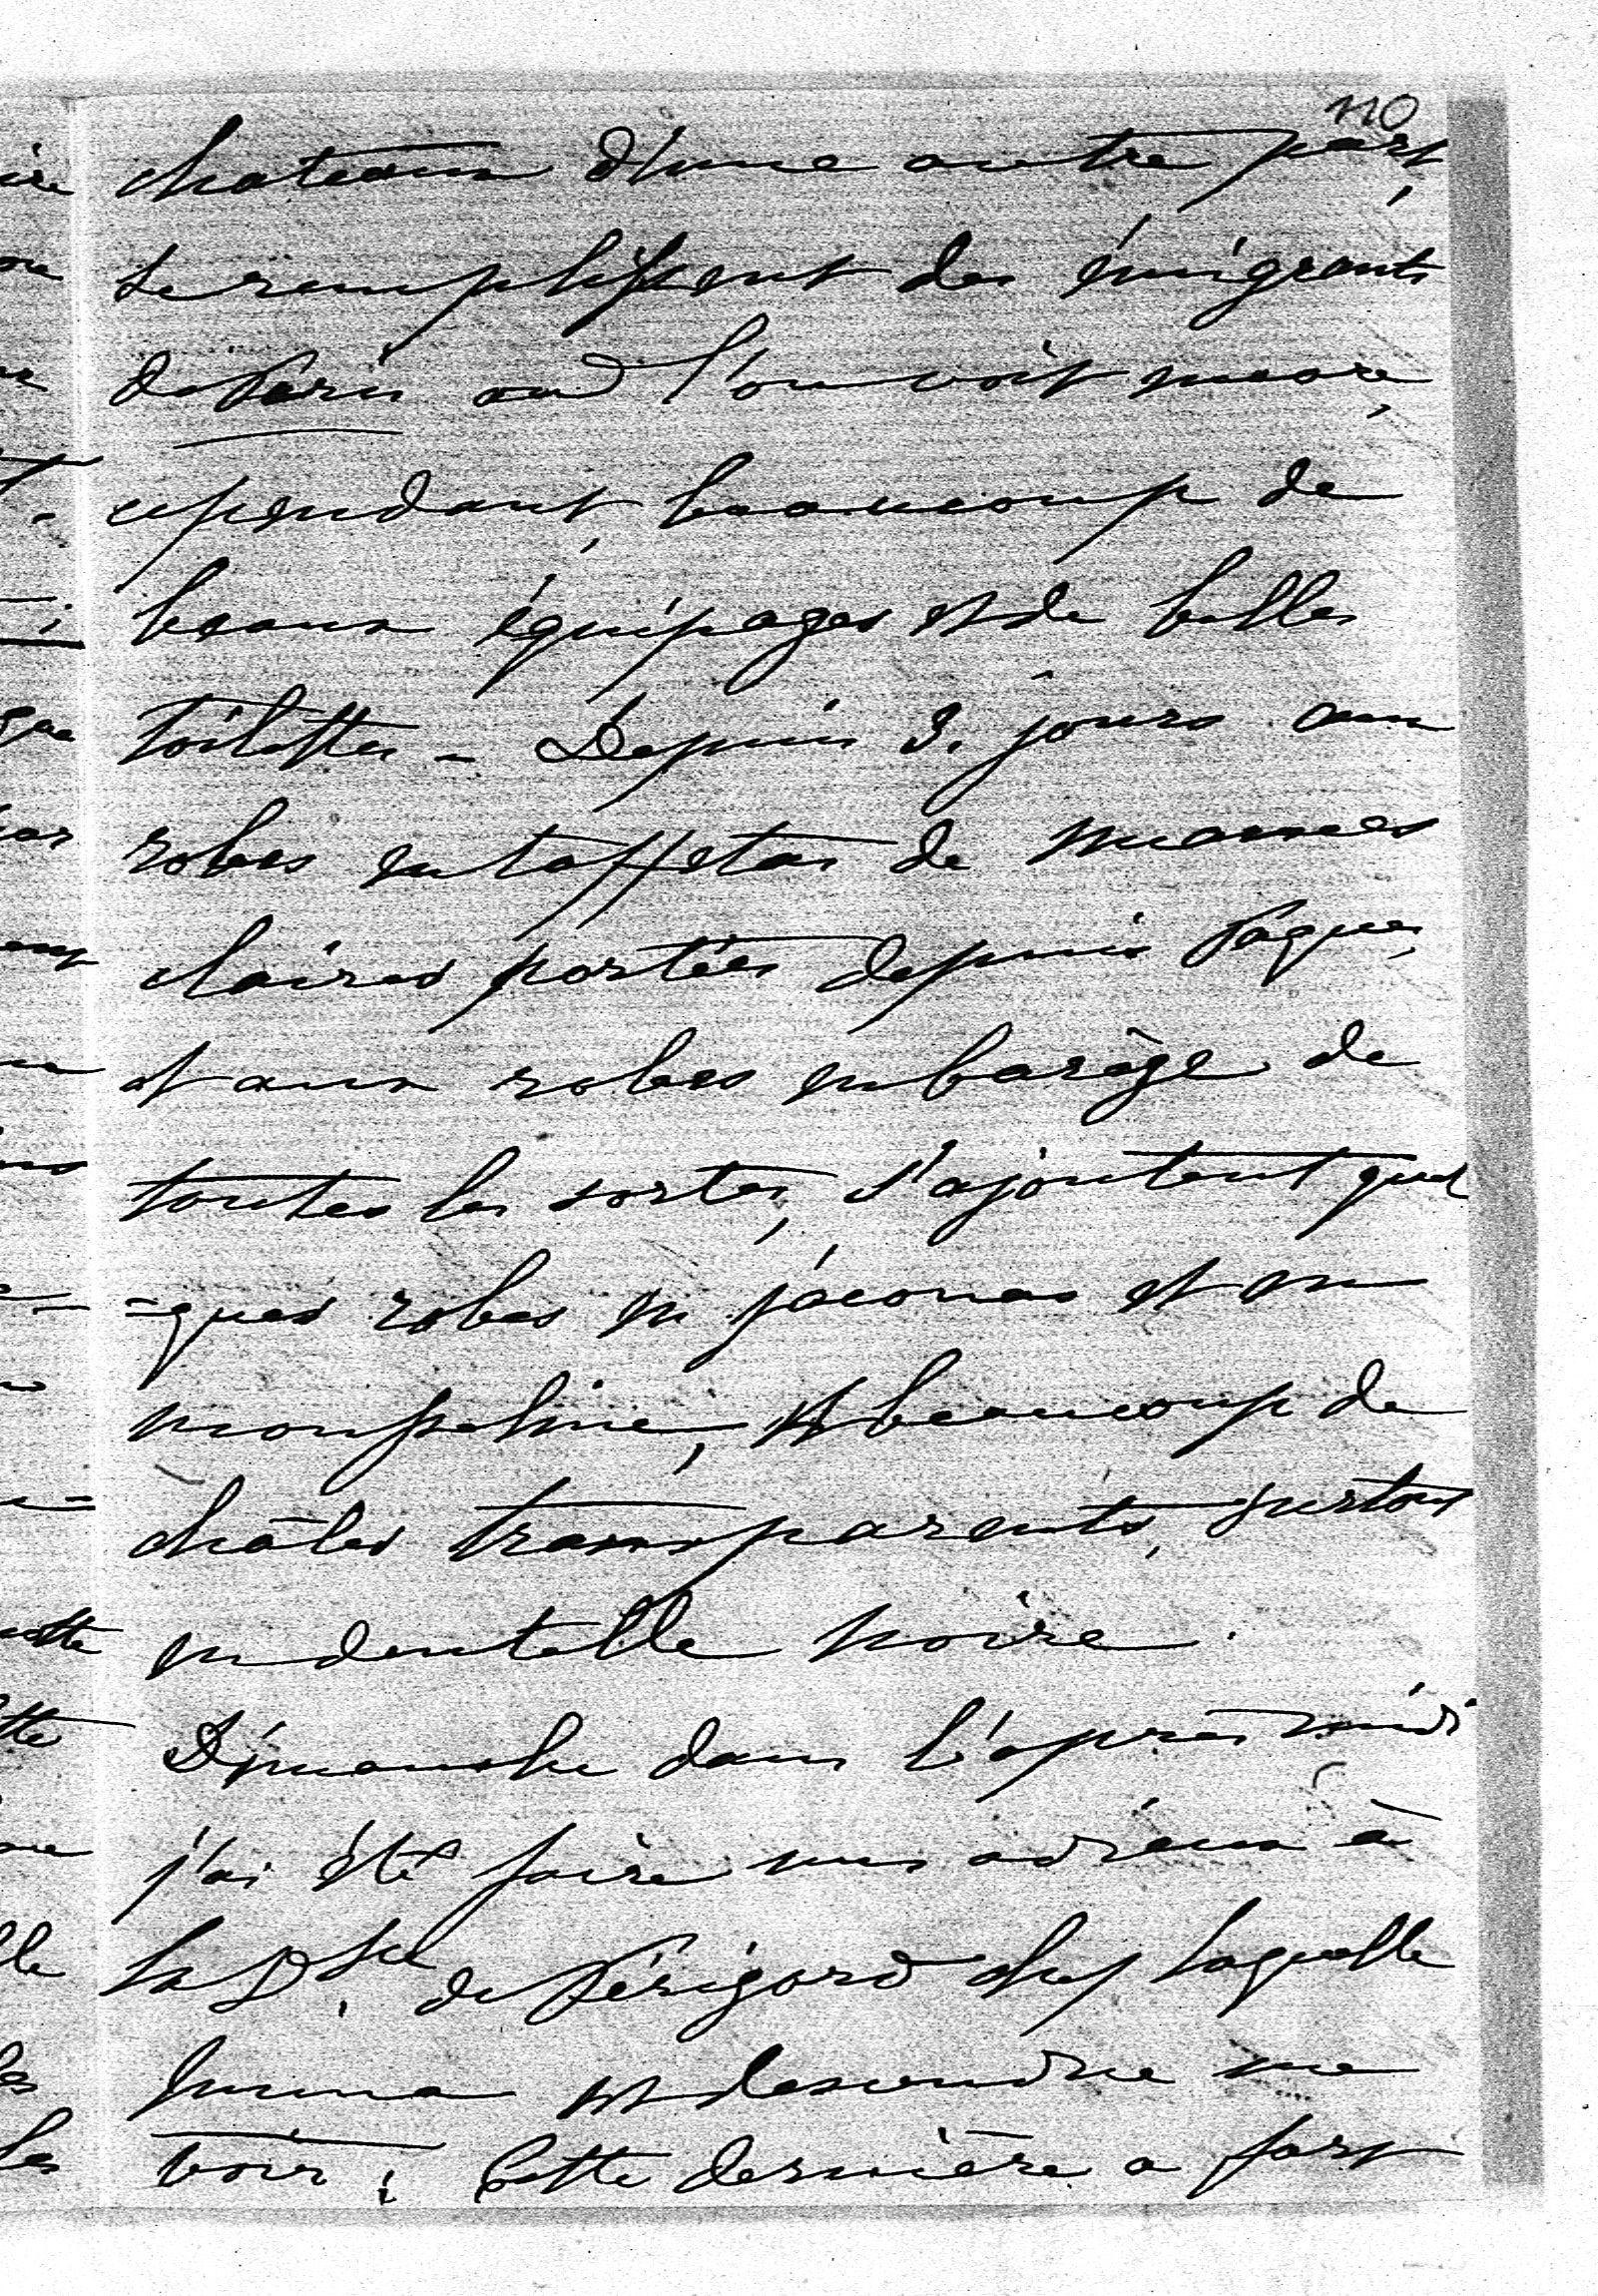 110
chateaux d'une autre part,
se remplissent des émigrants
de Paris où l'on voit encore,
cependant, beaucoup de
beaux équipages et de belles
toilettes - Depuis 3. jours aux
robes en taffetas de nuances
claires portées depuis Pâques,
et aux robes en barège de
toutes les sortes, s'ajoutent quel
=ques robes en jaconas et en
mousseline, et beaucoup de
châles transparents, surtout
en dentelle noire.
Dimanche dans l'après midi
j'ai été faire mes adieux à
la Dsse. de Périgord chez laquelle
est descendue me
voir; Cette dernière a fort